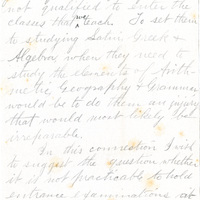 not qualified to enter the
classes that we teach. To set them
to studying Latin Greek &
Algebra when they need to
study the elements of Arith-
metic Geography & Grammar
would be to do them an injury
that would most likely be
irreparable.
In this connection I wish
to suggest the question whether
it is not practicable to hold
entrance examinations at